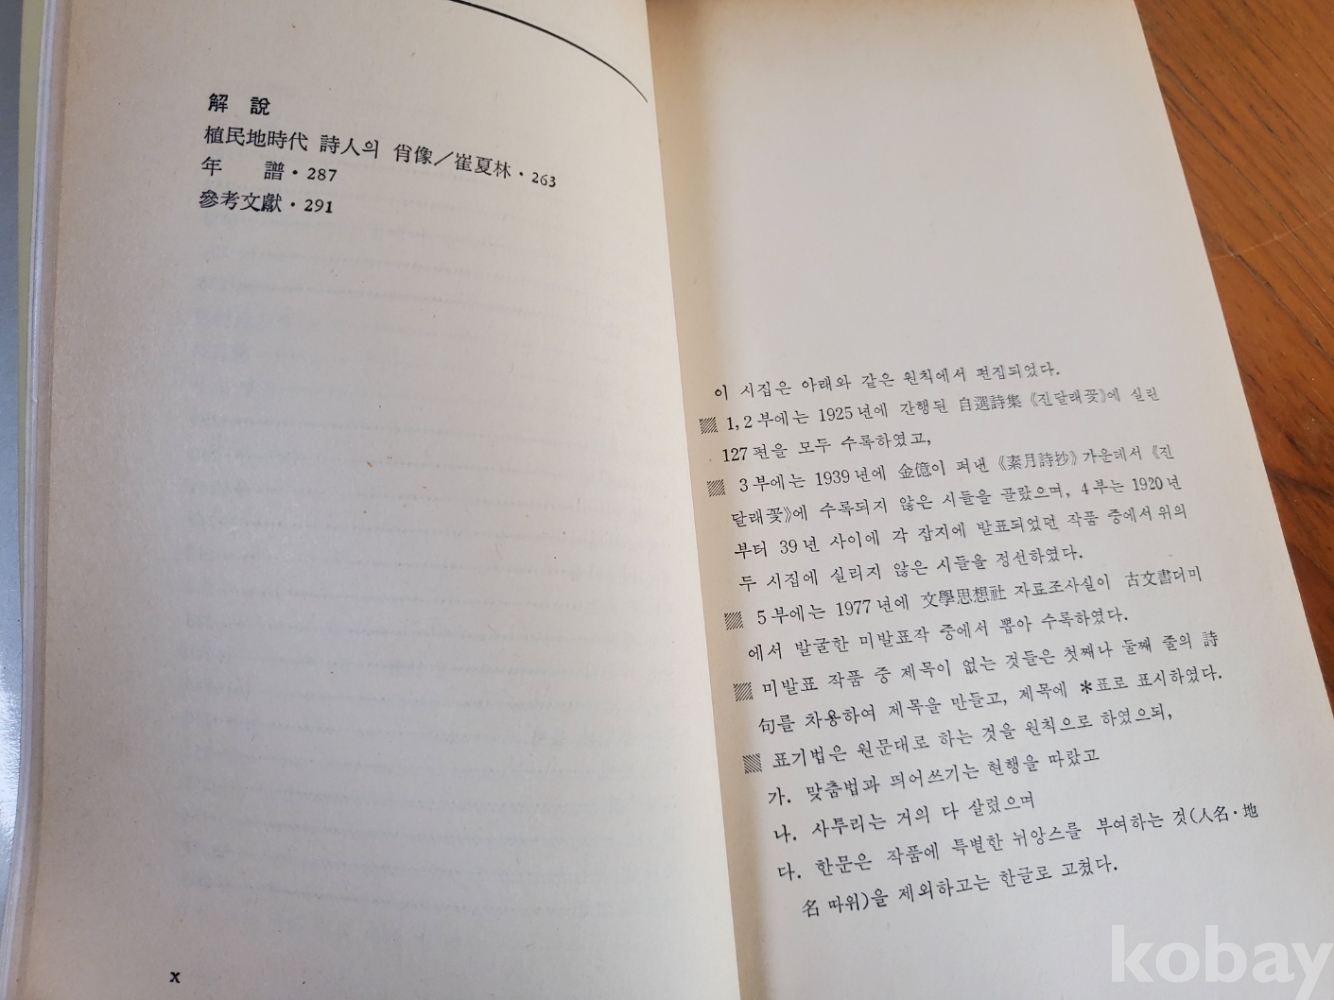 解 說
植民地時代 詩人의 肖像／崔夏林・263
年 譜・287
參考文獻・291
x
이 시집은 아래와 같은 원칙에서 편집되었다.
1, 2부에는 1925년에 간행된 自選詩集 《진달래꽃》에 실린
127편을 모두 수록하였고,
3부에는 1939년에 金億이 펴낸 《素月詩抄》 가운데서 《진
달래꽃》에 수록되지 않은 시들을 골랐으며, 4부는 1920년
부터 39년 사이에 각 잡지에 발표되었던 작품 중에서 위의
두 시집에 실리지 않은 시들을 정선하였다.
5부에는 1977년에 文學思想社 자료조사실이 古文書더미
에서 발굴한 미발표작 중에서 뽑아 수록하였다.
미발표 작품 중 제목이 없는 것들은 첫째나 둘째 줄의 詩
句를 차용하여 제목을 만들고, 제목에 *표로 표시하였다.
표기법은 원문대로 하는 것을 원칙으로 하였으되,
가. 맞춤법과 띄어쓰기는 현행을 따랐고
나. 사투리는 거의 다 살렸으며
다. 한문은 작품에 특별한 뉘앙스를 부여하는 것(人名・地
名 따위)을 제외하고는 한글로 고쳤다.
kobay